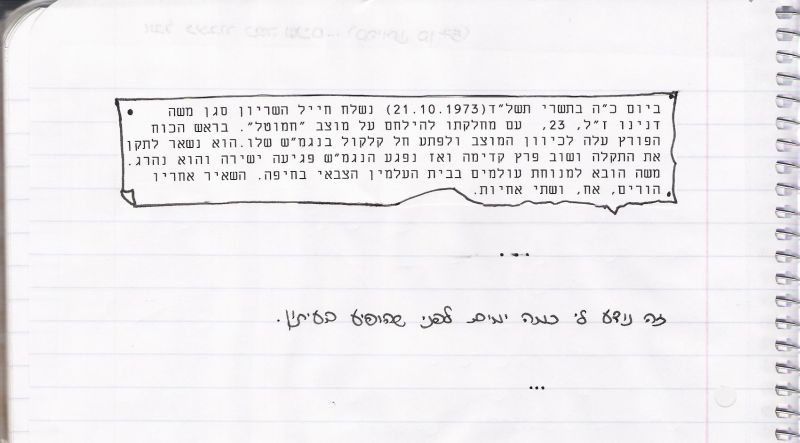 ביום כ"ה בתשרי תשל"ד(21.10.1973) נשלח חייל השריון סגן משה
דנינו ז"ל, 23, עם מחלקתו להילחם על מוצב "חמוטל". בראש הכוח
הפורץ עלה לכיוון המוצב ולפתע חל קלקול בנגמ"ש שלו.הוא נשאר לתקן
את התקלה ושוב פרץ קדימה ואז נפגע הנגמ"ש פגיעה ישירה והוא נהרג.
משה הובא למנוחת עולמים בבית העלמין הצבאי בחיפה. השאיר אחריו
הורים, אח, ושתי אחיות.
...
זה נודע לי כמה ימים לפני שהופיע בעיתון.
...